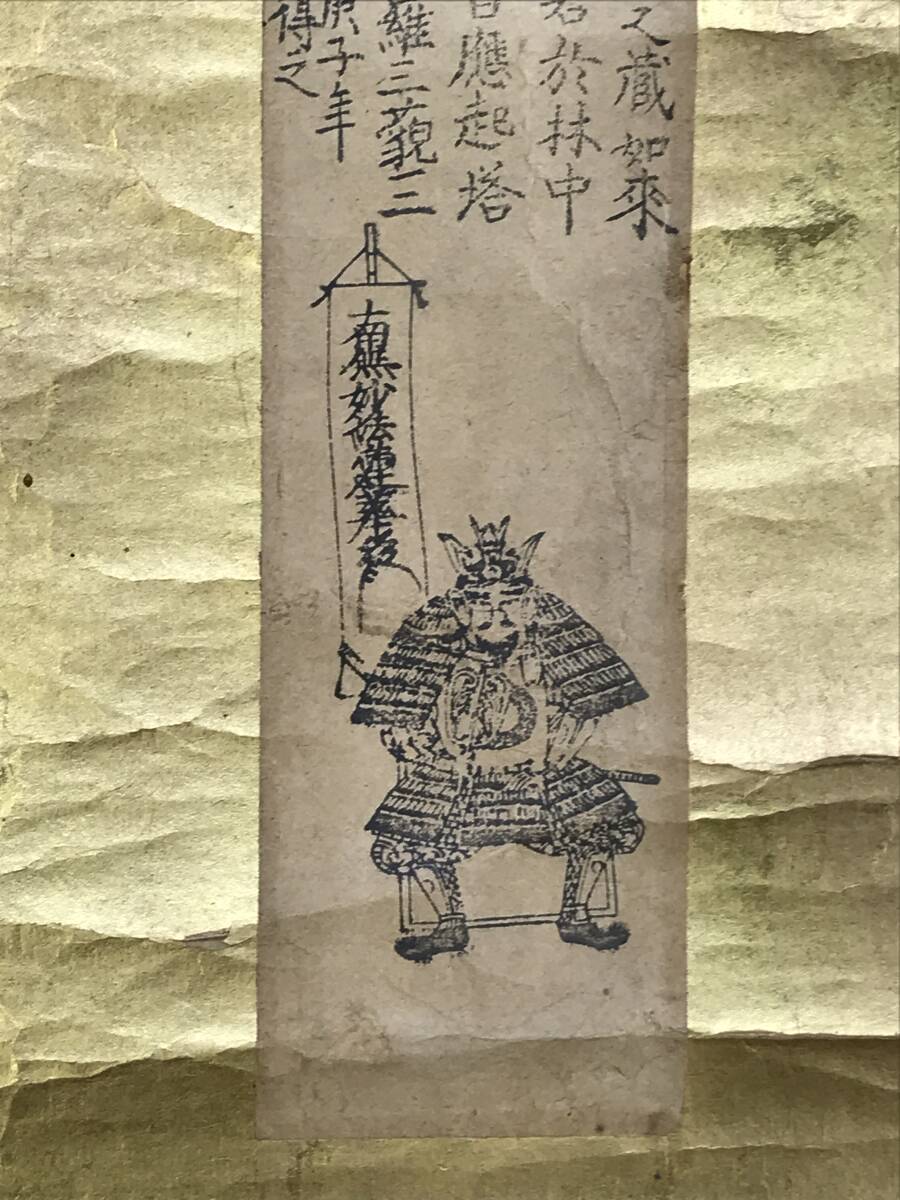 之藏如來
若於林中
皆應起塔
羅三藐三
庚子年
傳之
南無妙法蓮華経